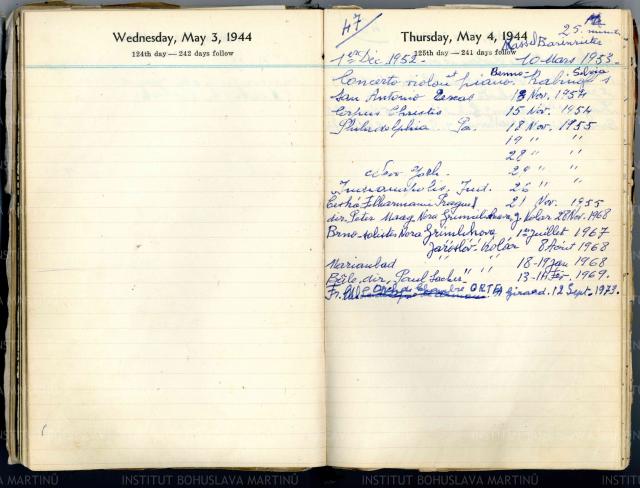 Wednesday, May 3, 1944
124th day — 242 days follow
47
25. minutes
Thursday, May 4, 1944
Kassel Barenreiter
125th day — 241 days follow
1er Déc 1952 - 10 Mars 1953.
Benno - Silvia
Concerto violon et piano Rabinof's
San Antonio Texas 13 Nov. 1954
Corpus Christis 15 Nov. 1954
Philidelphia Pa. 18 Nov. 1955
19 " "
28 " "
New York. 29 " "
Ind. 26 " "
Česká Filharmonie Prague 21 Nov. 1955
dir. Peter Maag, Nora Grumlikova, J. Kolar 28 Nov. 1968
Brno - solistes Nora Grumlikova 1er Juillet 1967
Jaroslav Kolár 8 Août 1968
Marianbad " " 18-19 Jan 1968
Bâle, dir. "Paul Sacher" " 13-14 Fév. 1969.
Orch. de Chambre O.R.T.F. A Girard. 12 Sept. 1973.
INSTITUT BOHUSLAVA MARTINŮ INSTITUT BOHUSLAVA MARTINŮ